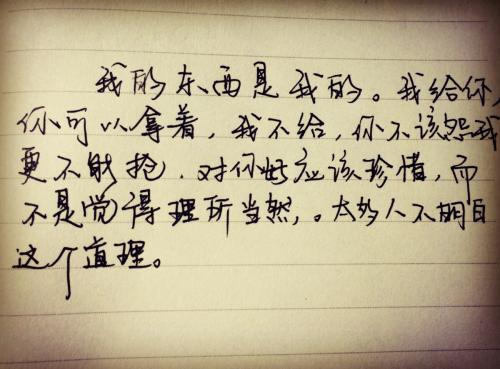 我的东西是我的。我给你,
你可以拿着，我不给，你不该怨我
更不能抢．对你好应该珍惜，而
不是觉得理所当然，。太多人不明白
这个道理。